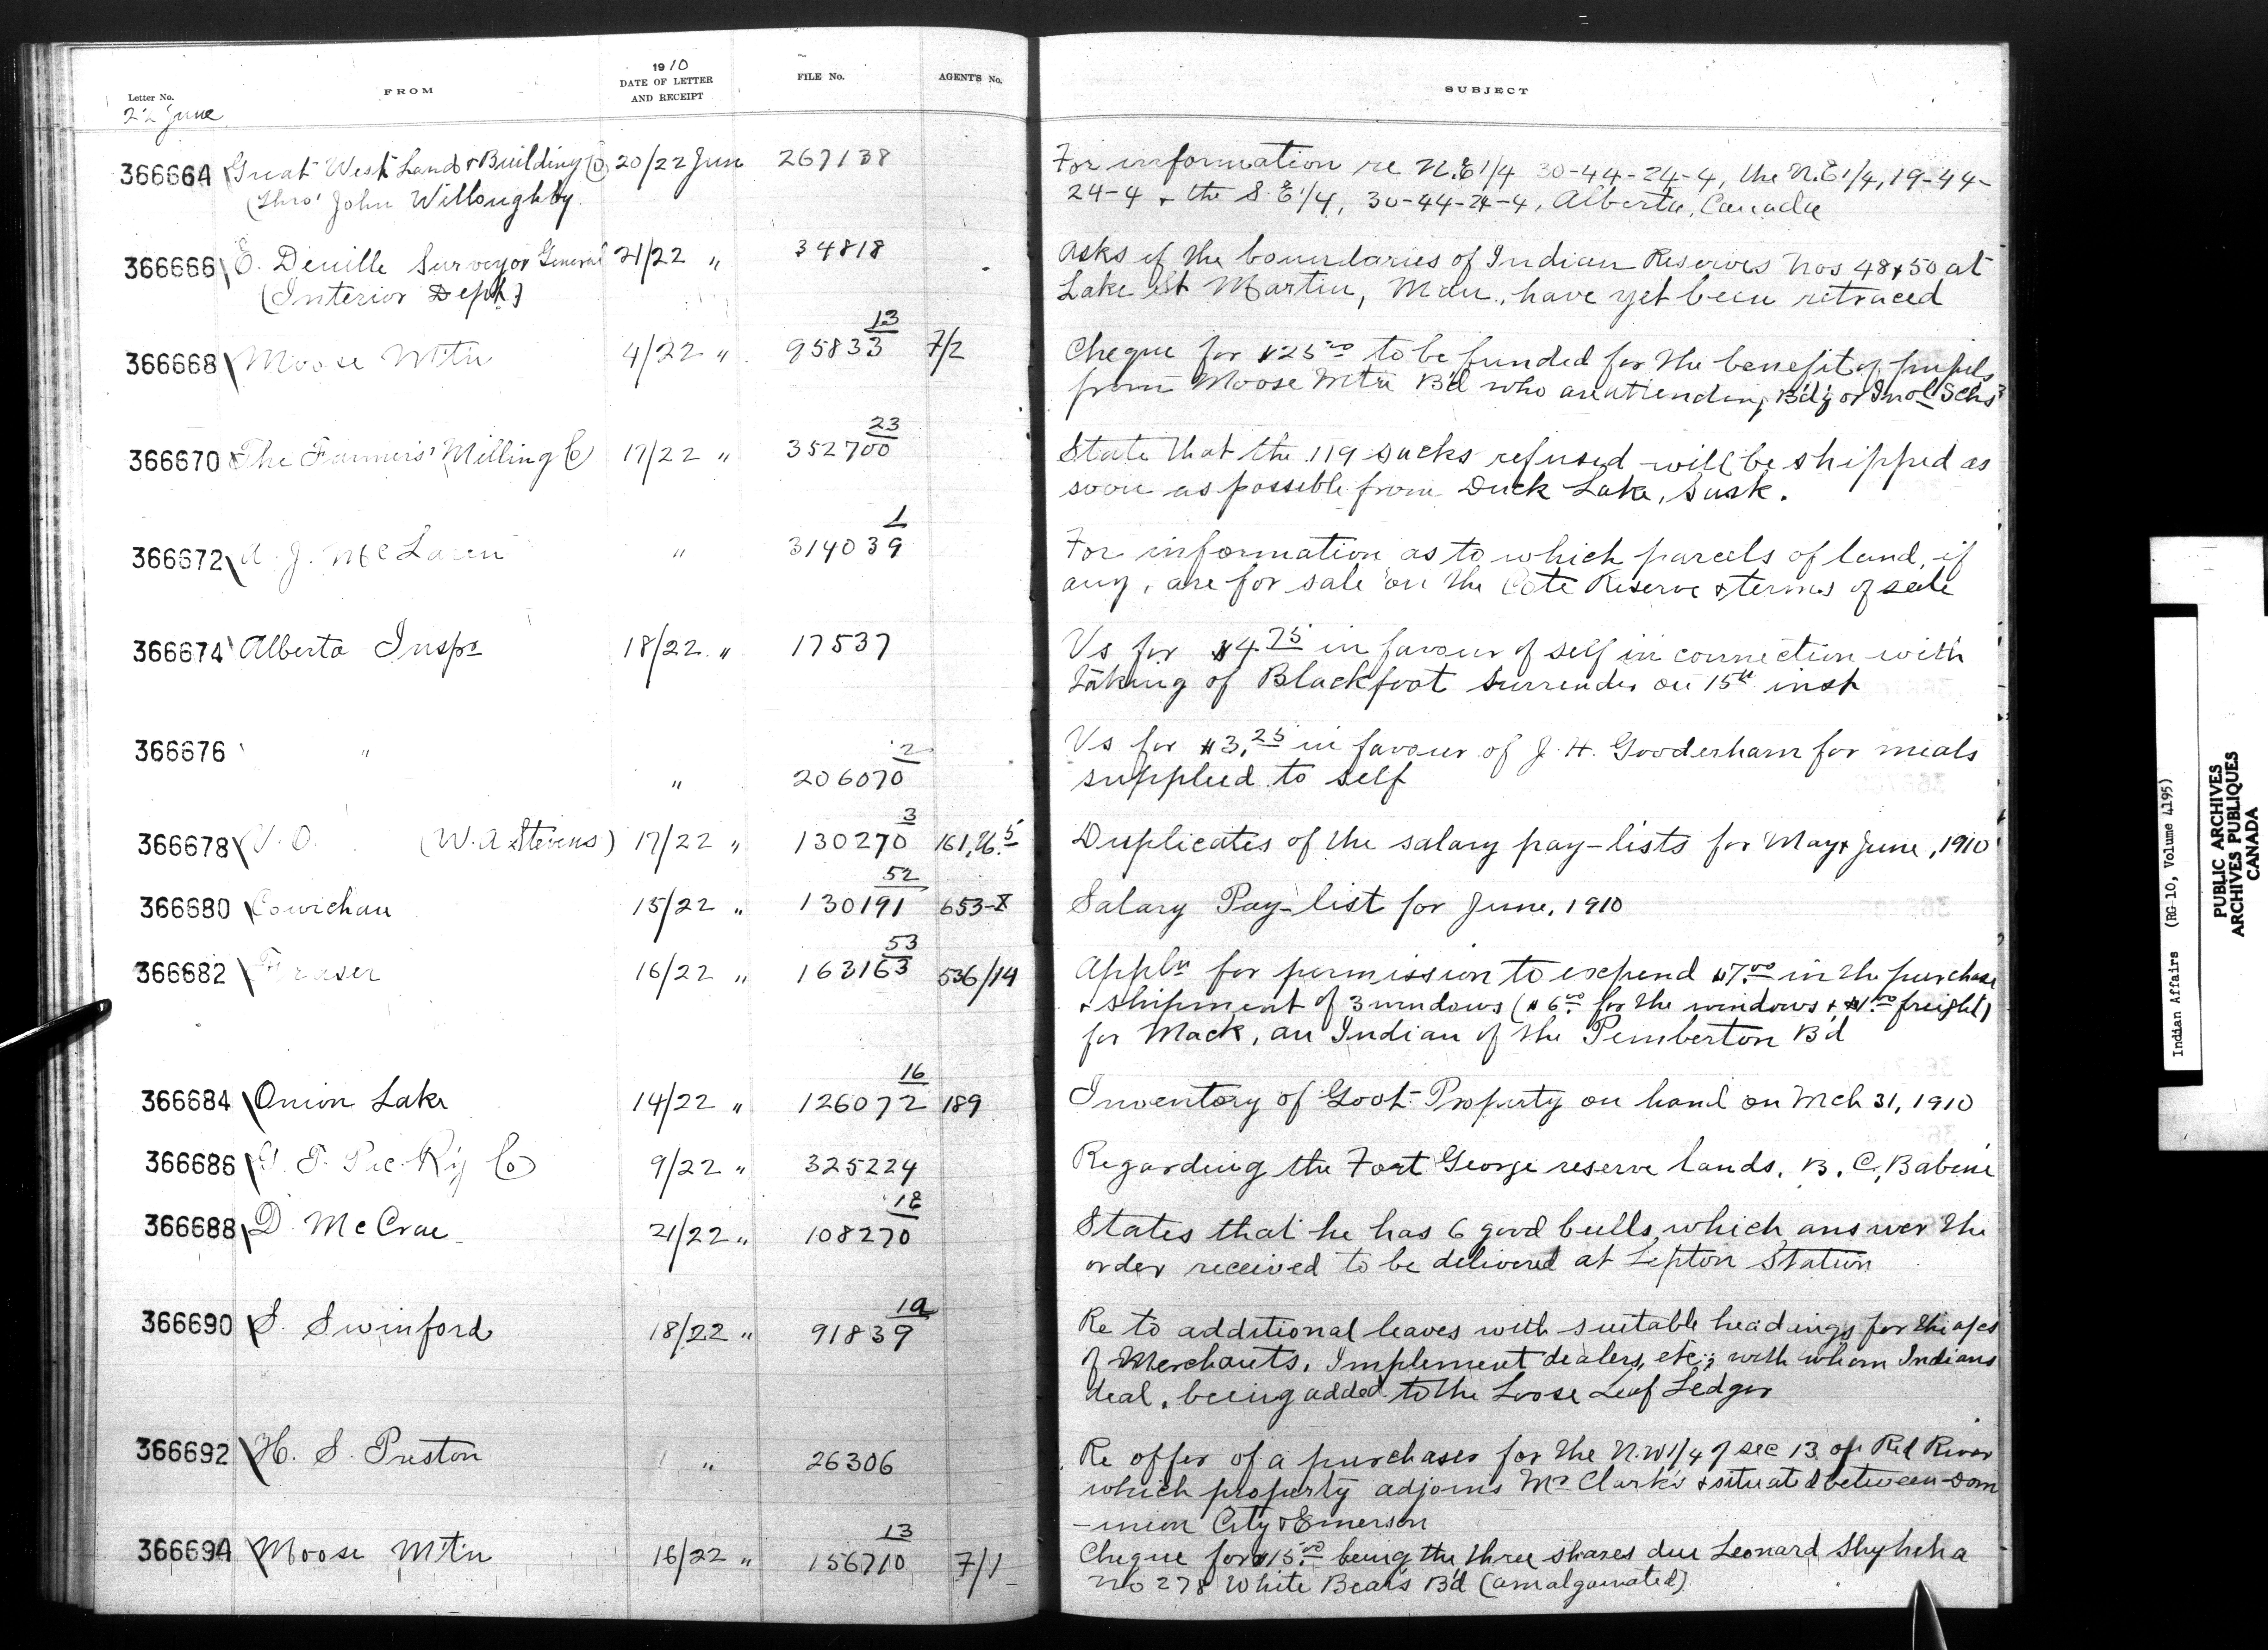 1910
Letter No. FROM DATE OF LETTER AND RECEIPT FILE No. AGENT'S No. SUBJECT
22 June
366664 Great West Land & Building Co 20/22 Jun 267138 For information re N.E 1/4 30-44-24-4, the N.E 1/4, 19-44-
(Thro' John Willoughby 24-4 & the S.E 1/4, 30-44-24-4, Alberta, Canada
366666 E. Deville Surveyor General 21/22 " 34818 Asks if the boundaries of Indian Reserves Nos 48 & 50 at
(Interior Dept.) Lake St Martin, Man., have yet been retraced
366668 Moose Mtn 4/22 " 95833 13 7/2 Cheque for $25.00 to be funded for the benefit of pupils
from Moose Mtn B'd who are attending B'd'g or Indl Schs
366670 The Farmers' Milling Co 17/22 " 352700 23 State that the 119 sacks refused will be shipped as
soon as possible from Duck Lake, Sask.
366672 A. J. McLaren " 314039 1 For information as to which parcels of land, if
any, are for sale on the Cote Reserve & terms of sale
366674 Alberta Inspr 18/22 " 17537 Vs for $4.75 in favour of self in connection with
taking of Blackfoot Surrender on 15th inst
366676 " " 206070 2 Vs for $3.25 in favour of J. H. Gooderham for meals
supplied to self
366678 (W. A Stevens) 17/22 " 130270 3 Duplicates of the salary pay-lists for May & June, 1910
366680 Cowichan 15/22 " 130191 52 Salary Pay-list for June, 1910
366682 Fraser 16/22 " 163163 53 536/14 Appln for permission to expend $7.00 in the purchase
& shipment of 3 windows ($6.00 for the windows & $1.00 freight)
for Mack, an Indian of the Pemberton B'd
366684 Onion Lake 14/22 " 126072 16 189 Inventory of Govt. Property on hand on Mch 31, 1910
366686 G. T. Pac. Ry Co 9/22 " 325224 Regarding the Fort George reserve lands, B. C., Babine
366688 D McCrae 21/22 " 108270 18 States that he has 6 good bulls which answer the
order received to be delivered at Lepton Station
366690 S. Swinford 18/22 " 91839 Re to additional leaves with suitable headings for the a/cs
of Merchants, Implement dealers, etc., with whom Indians
deal, being added to the Loose Leaf Ledger
366692 H. S. Preston " 26306 Re offer of a purchaser for the N.W 1/4 of sec 13 on Red River
which property adjoins Mr Clark's & situated between Dom
-inion City & Emerson
366694 Moose Mtn 16/22 " 156710 13 7/1 Cheque for $15.00 being the three shares due Leonard
No 278 White Bears B'd (amalgamated)
Indian Affairs (RG 10, Volume 4195)
PUBLIC ARCHIVES
ARCHIVES PUBLIQUES
CANADA